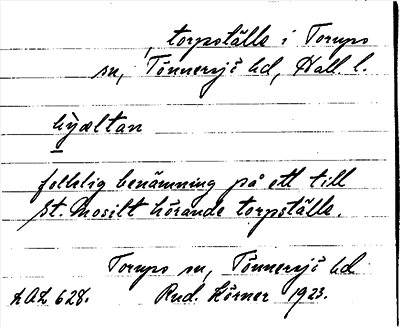 , torpställe i Torups
sn, Tönnersjö hd, Hall. l.
folklig benämning på ett till
St. Mosilt hörande torpställe.
Torups sn, Tönnersjö hd
LAL 628. Rud. Körner 1923.